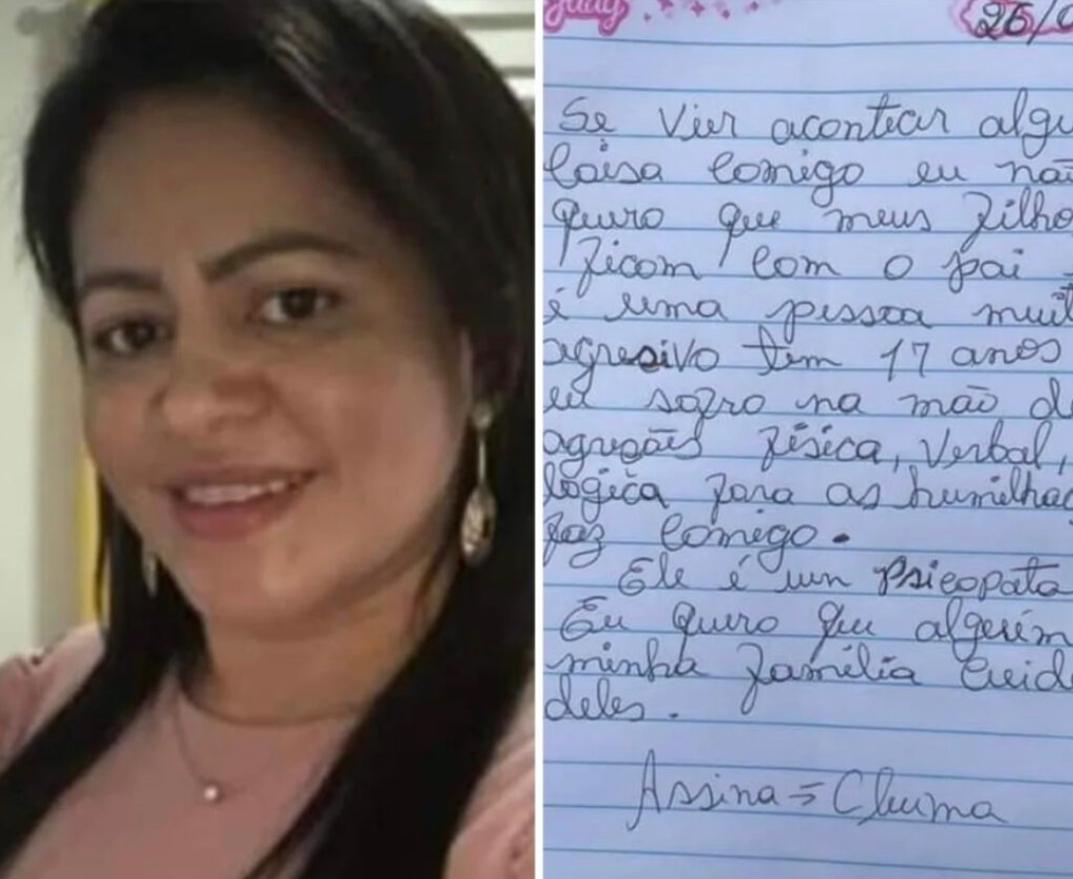 Judy
26/0
Se Vier acontecer algu
Coisa Comigo eu não
quero que meus filho
ficam com o pai
é uma pessoa muit
agresivo tem 17 anos
eu sofro na mão d
agresões física, Verbal,
lógica fora as humilhaç
faz Comigo.
Ele é um Psicopata
Eu quero que alguém
minha família Cuid
deles.
Assina = Cleuma